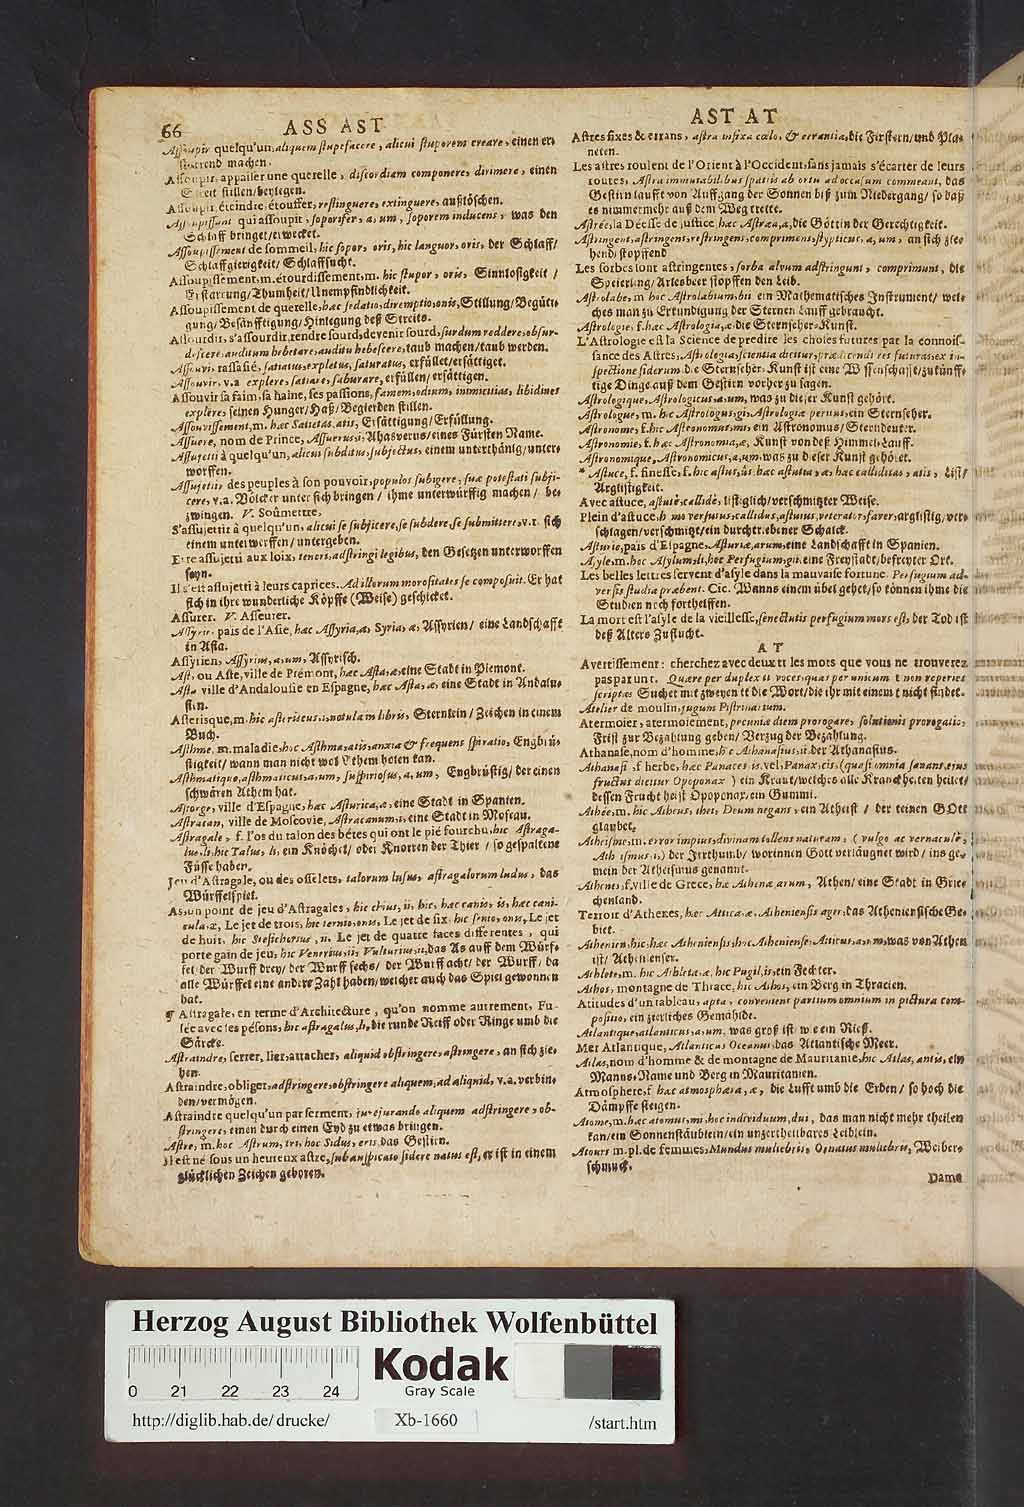 66
ASS AST
Assoupir quelqu'un, aliquem stupefacere, alicui stuporem creare, einen er-
starrend machen.
Assoupir, appaiser une querelle, discordiam componere, dirimere, einen
Streit stillen/beylegen.
Assoupir, éteindre, étouffer, restinguere, extinguere, außlöschen.
Assoupissant qui assoupit, soporifer, a, um, soporem inducens, was den
Schlaff bringet/erwecket.
Assoupissement de sommeil, hic sopor, oris, hic languor, oris, der Schlaff/
Schlaffgierigkeit/ Schlaffsucht.
Assoupissement, étourdissement, m. hic stupor, oris, Sinnlosigkeit /
Erstarrung/Thumheit/Unempfindlichkeit.
Assoupissement de querelle, hæc sedatio, diremptio, onis, Stillung/ Begüti-
gung/ Besänfftigung/ Hinlegung deß Streits.
Assourdir, s'assourdir, rendre sourd, devenir sourd, surdum reddere, obsur-
descere, auditum hebetare, auditu hebescere, taub machen/taub werden.
Assouvi, rassasié, satiatus, expletus, saturatus, erfüllet/ersättiget.
Assouvir, v.a. explere, satiare, saburare, erfüllen/ ersättigen.
Assouvir sa faim, sa haine, ses passions, famem, odium, inimicitias, libidines
explere, seinen Hunger/ Haß/ Begierden stillen.
Assouvissement, m. hæc Satietas, atis, Ersättigung/ Erfüllung.
Assuere, nom de Prince, Assuerus, i, Ahasverus/eines Fürsten Name.
Assujetti à quelqu'un, alicui subditus, subjectus, einem unterthänig/unter-
worffen.
Assujettir des peuples à son pouvoir, populos subigere, suæ potestati subji-
cere, v.a. Völcker unter sich bringen / ihme unterwürffig machen / be-
zwingen. V. Soûmettre.
S'assujettir à quelqu'un, alicui se subjicere, se subdere, se submittere, v.r. sich
einem unterwerffen/ untergeben.
Estre assujetti aux loix, teneri, adstringi legibus, den Gesetzen unterworffen
seyn.
Il s'est assujetti à leurs caprices. Ad illorum morositates se composuit. Er hat
sich in ihre wunderliche Köpffe (Weise) geschicket.
Assurer. V. Asseurer.
Assyrie, païs de l'Asie, hæc Assyria, æ, Syria, æ, Assyrien/ eine Landschafft
in Asia.
Assyrien, Assyrius, a, um, Assyrisch.
Ast, ou Aste, ville de Piémont, hæc Asta, æ, eine Stadt in Piemont.
Asta ville d'Andalousie en Espagne, hæc Asta, æ, eine Stadt in Andalu-
sien.
Asterisque, m. hic asteriscus, i, notulam libris, Sternlein/ Zeichen in einem
Buch.
Asthme, m. maladie, hoc Asthma, atis, anxia & frequens spiratio, Engbrü-
stigkeit/ wann man nicht wol Athem holen kan.
Asthmatique, asthmaticus, a, um, suspiriosus, a, um, Engbrüstig/ der einen
schwären Athem hat.
Astorge, ville d'Espagne, hæc Asturica, æ, eine Stadt in Spanien.
Astracan, ville de Moscovie, Astracanum, i, eine Stadt in Moscau.
Astragale, f. l'os du talon des bêtes qui ont le pié fourchu, hic Astraga-
lus, li, hic Talus, li, ein Knöchel/ oder Knorren der Thier / so gespaltene
Füsse haben.
Jeu d'Astragale, ou des osselets, talorum lusus, astragalorum ludus, das
Würffelspiel.
As, un point de jeu d'Astragales, hic chius, ii, hic, hæc canis, is, hæc cani-
cula, æ, Le jet de trois, hic ternio, onis, Le jet de six, hic senio, onis, Le jet
de huit, hic Stesichorus, ii. Le jet de quatre faces differentes, qui
porte gain de jeu, hic Venerius, ii, Vulturius, ii, das As auff dem Würf-
fel der Wurff drey/ der Wurff sechs/ der Wurff acht/ der Wurff/ da
alle Würffel eine andere Zahl haben/ welcher auch das Spiel gewonnen
hat.
¶ Astragale, en terme d'Architecture, qu'on nomme autrement, Fu-
sée avec ses pesons, hic astragalus, li, die runde Reiff oder Ringe umb die
Särcke.
Astraindre, serrer, lier, attacher, aliquid obstringere, astringere, an sich zie-
hen.
Astraindre, obliger, adstringere, obstringere aliquem, ad aliquid, v.a. verbin-
den/vermögen.
Astraindre quelqu'un par serment, jurejurando aliquem adstringere, ob-
stringere, einen durch einen Eyd zu etwas bringen.
Astre, m. hoc Astrum, tri, hoc Sidus, eris, das Gestirn.
Il est né sous un heureux astre, sub auspicato sidere natus est, er ist in einem
glücklichen Zeichen geboren.
AST AT
Astres fixes & errans, astra infixa cœlo, & errantia, die Fixstern/und Pla-
neten.
Les astres roulent de l'Orient à l'Occident, sans jamais s'écarter de leurs
routes, Astra immutabilibus spatiis ab ortu ad occasum commeant, das
Gestirn laufft von Auffgang der Sonnen biß zum Niedergang/ so daß
es nimmermehr auß dem Weg trette.
Astrée, la Déesse de justice, hæc Astræa, æ, die Göttin der Gerechtigkeit.
Astringent, astringens, restringens, comprimens, stypticus, a, um, an sich zie-
hend/stopffend
Les sorbes sont astringentes, sorba alvum adstringunt, comprimunt, die
Speierling/ Arlesbeer stopffen den Leib.
Astrolabe, m. hoc Astrolabium, bii ein Mathematisches Instrument/ wel-
ches man zu Erkundigung der Sternen Lauff gebraucht.
Astrologie, f. hæc Astrologia, æ, die Sternseher-Kunst.
L'Astrologie est la Science de predire les choses futures par la connois-
sance des Astres, Astrologia, scientia dicitur, prædicendi res futuras, ex in-
spectione siderum die Sternseher-Kunst ist eine Wissenschafft/zukünff-
tige Dinge auß dem Gestirn vorher zu sagen.
Astrologique, Astrologicus, a, um, was zu dieser Kunst gehört.
Astrologue, m. hic Astrologus, gi, Astrologiæ peritus, ein Sternseher.
Astronome, f. hic Astronomus, mi, ein Astronomus/Sterndeuter.
Astronomie, f. hæc Astronomia, æ, Kunst von deß Himmels Lauff.
Astronomique, Astronomicus, a, um, was zu dieser Kunst gehöret.
* Astuce, f. finesse, f. hic astus, ûs, hæc astutia, æ, hæc calliditas, atis, List/
Arglistigkeit.
Avec astuce, astutè, callidè, listiglich/verschmitzter Weise.
Plein d'astuce, homo versutus, callidus, astutus, veterator, faver, arglistig/ver-
schlagen/verschmitzt/ein durchtriebener Schalck.
Asturie, païs d'Espagne, Asturiæ, arum, eine Landschafft in Spanien.
Asyle, m. hoc Asylum, li, hoc Perfugium, gii, eine Freystadt/befreyter Ort.
Les belles lettres servent d'asyle dans la mauvaise fortune. Perfugium ad-
versis studia præbent. Cic. Wanns einem übel gehet/so können ihme die
Studien noch forthelffen.
La mort est l'asyle de la vieillesse, senectutis perfugium mors est, der Tod ist
deß Alters Zuflucht.
A T
Avertissement: cherchez avec deux tt les mots que vous ne trouverez
pas par un t. Quære per duplex tt voces, quas per unicum t non reperies
scriptas Suchet mit zweyen tt die Wort/die ihr mit einem t nicht findet.
Atelier de moulin, jugum Pistrinarium.
Atermoier, atermoiement, pecuniæ diem prorogare, solutionis prorogatio,
Frist zur Bezahlung geben/ Verzug der Bezahlung.
Athanase, nom d'homme, hic Athanasius, ii, der Athanasius.
Athanasi, f. herbe, hæc Panaces is, vel, Panax, cis, (quasi omnia sanans, ejus
fructus dicitur Opoponax) ein Kraut/welches alle Kranckheiten heilet/
dessen Frucht heist Opoponax, ein Gummi.
Athée, m. hic Atheus, thei, Deum negans, ein Atheist / der keinen GOtt
glaubet.
Atheisme, m. error impius, divinam tollens naturam, (vulgo ac vernaculè,
Atheismus, i,) der Irrthumb/ worinnen Gott verläugnet wird/ ins ge-
mein der Atheismus genannt.
Athenes, f. ville de Grece, hæ Athenæ arum, Athen/ eine Stadt in Grie-
chenland.
Terroir d'Athenes, hæc Attica, æ, Atheniensis ager, das Atheniensische Ge-
biet.
Athenien, hic, hæc Atheniensis, hoc Atheniense, Atticus, a, um, was von Athen
ist/ Athenienser.
Athlete, m. hic Athleta, æ, hic Pugil, is, ein Fechter.
Athos, montagne de Thrace, hic Athos, ein Berg in Thracien.
Atitudes d'un tableau, apta, conveniens partium omnium in pictura com-
positio, ein zierliches Gemählde.
Atlantique, atlanticus, a, um, was groß ist/ wie ein Rieß.
Mer Atlantique, Atlanticus Oceanus, das Atlantische Meer.
Atlas, nom d'homme & de montagne de Mauritanie, hic Atlas, antis, ein
Manns-Name und Berg in Mauritanien.
Atmosphere, f. hæc atmosphæra, æ, die Lufft umb die Erden/ so hoch die
Dämpffe steigen.
Atome, m. hæc atomus, mi, hoc individuum, dui, das man nicht mehr theilen
kan/ein Sonnenstäublein/ein unzertheilbares Leiblein.
Atours m. pl. de femmes, Mundus muliebris, Ornatus muliebris, Weiber-
schmuck.
Dame
Herzog August Bibliothek Wolfenbüttel
Kodak
Gray Scale
0 21 22 23 24
http://diglib.hab.de/drucke/
Xb-1660
/start.htm